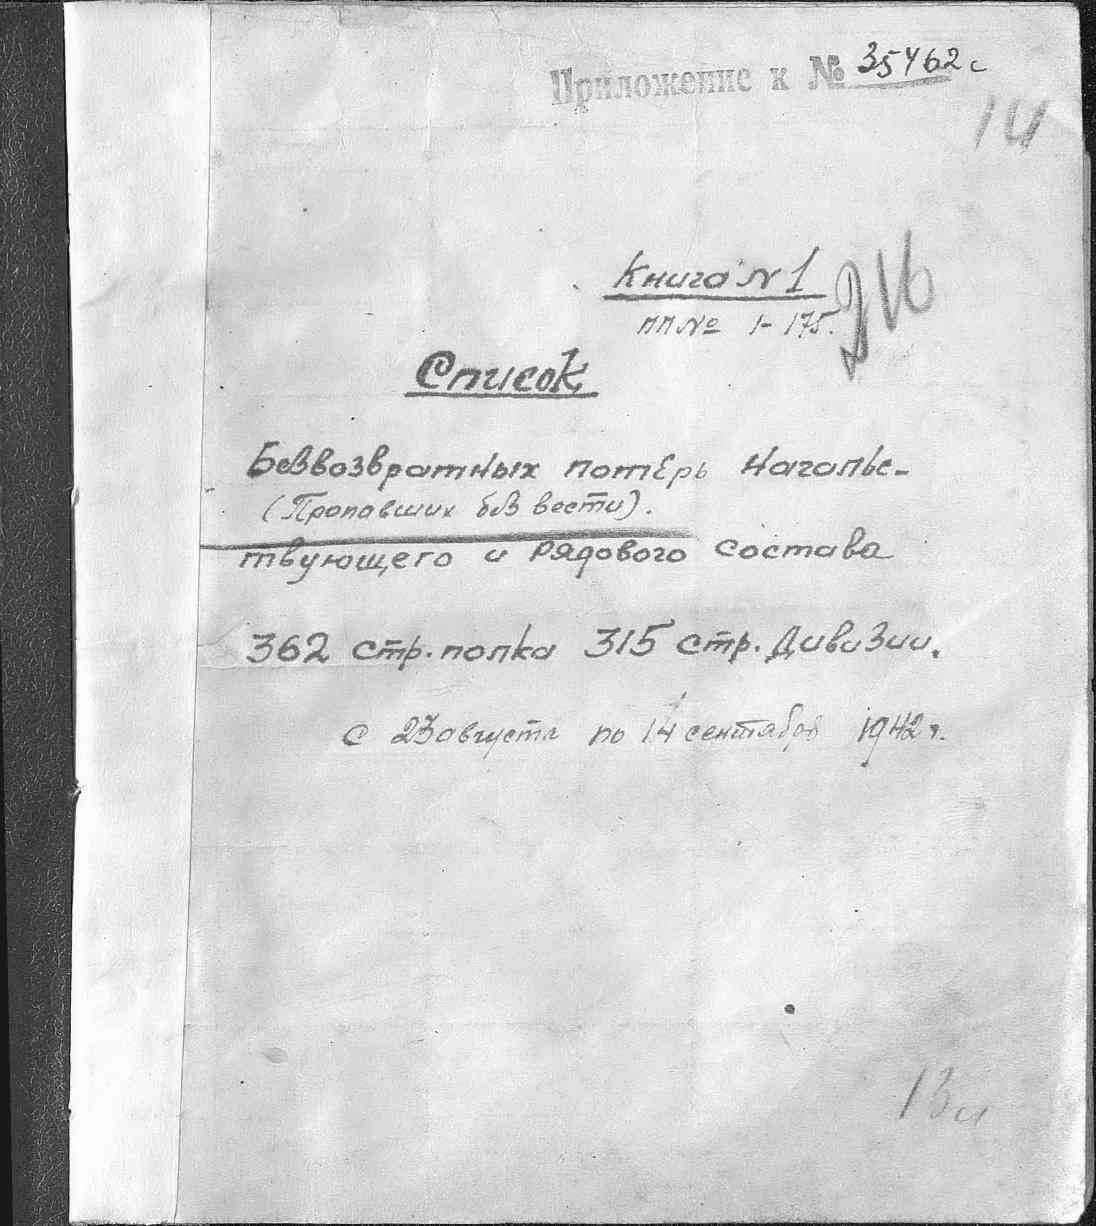 Приложение к № 35462с
14
Книга N 1
ппNo 1-175.
216
Список
Безвозвратных потерь Начальс-
(Пропавших без вести).
твующего и рядового состава
362 стр. полка 315 стр. Дивизии.
с 23 августа по 14 сентября 1942 г.